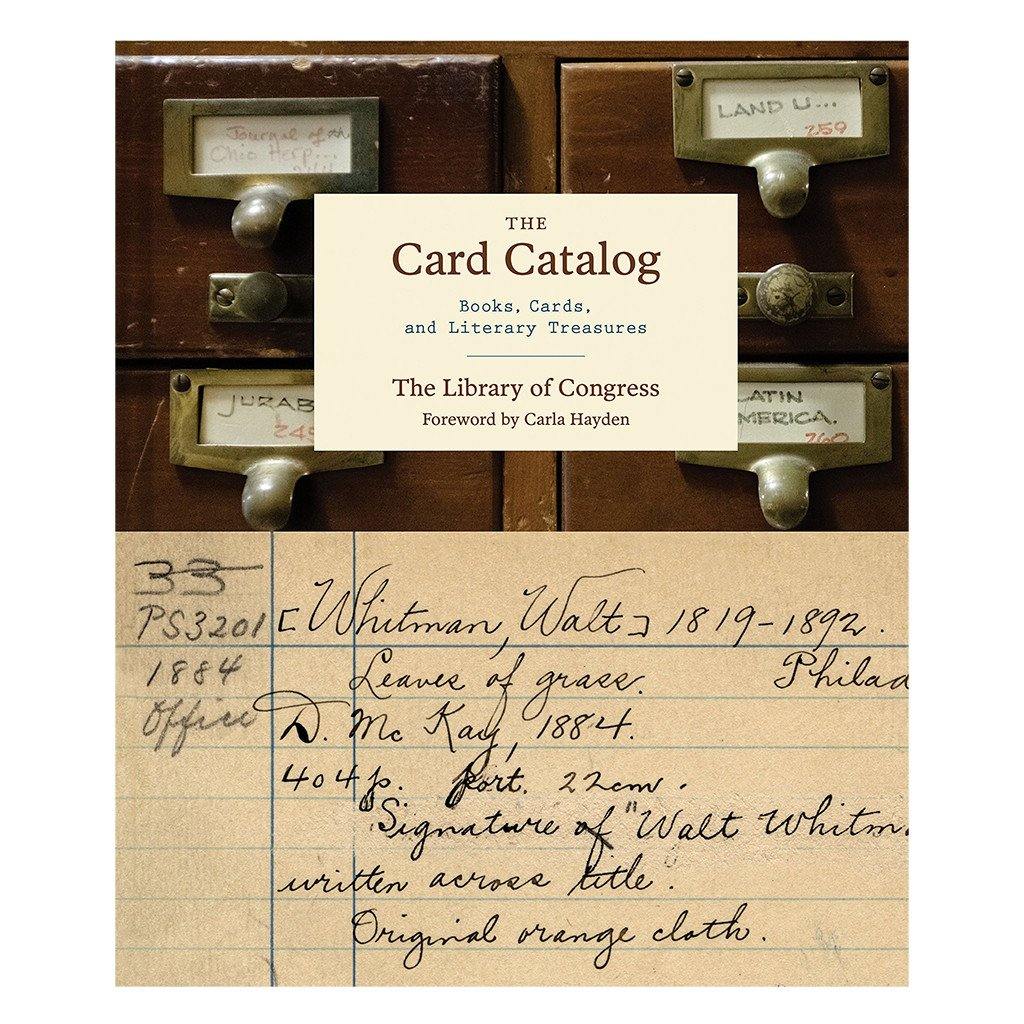 Journal of the
Ohio Herp...
LAND U...
259
THE
Card Catalog
Books, Cards,
and Literary Treasures
The Library of Congress
Foreword by Carla Hayden
JURAB
249
LATIN
AMERICA.
260
33
PS3201 [Whitman, Walt] 1819-1892.
1884 Leaves of grass. Philad
Office D. Mc Kay, 1884.
404 p. port. 22cm.
"Signature of "Walt Whitm.
written across title.
Original orange cloth.